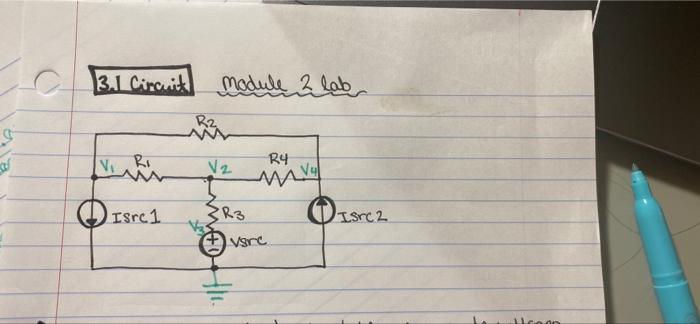 3.1 Circuit module 2 lab
R2
V1 R1 V2 R4 V4
Isrc1 R3 Isrc2
V3
+ Vsrc